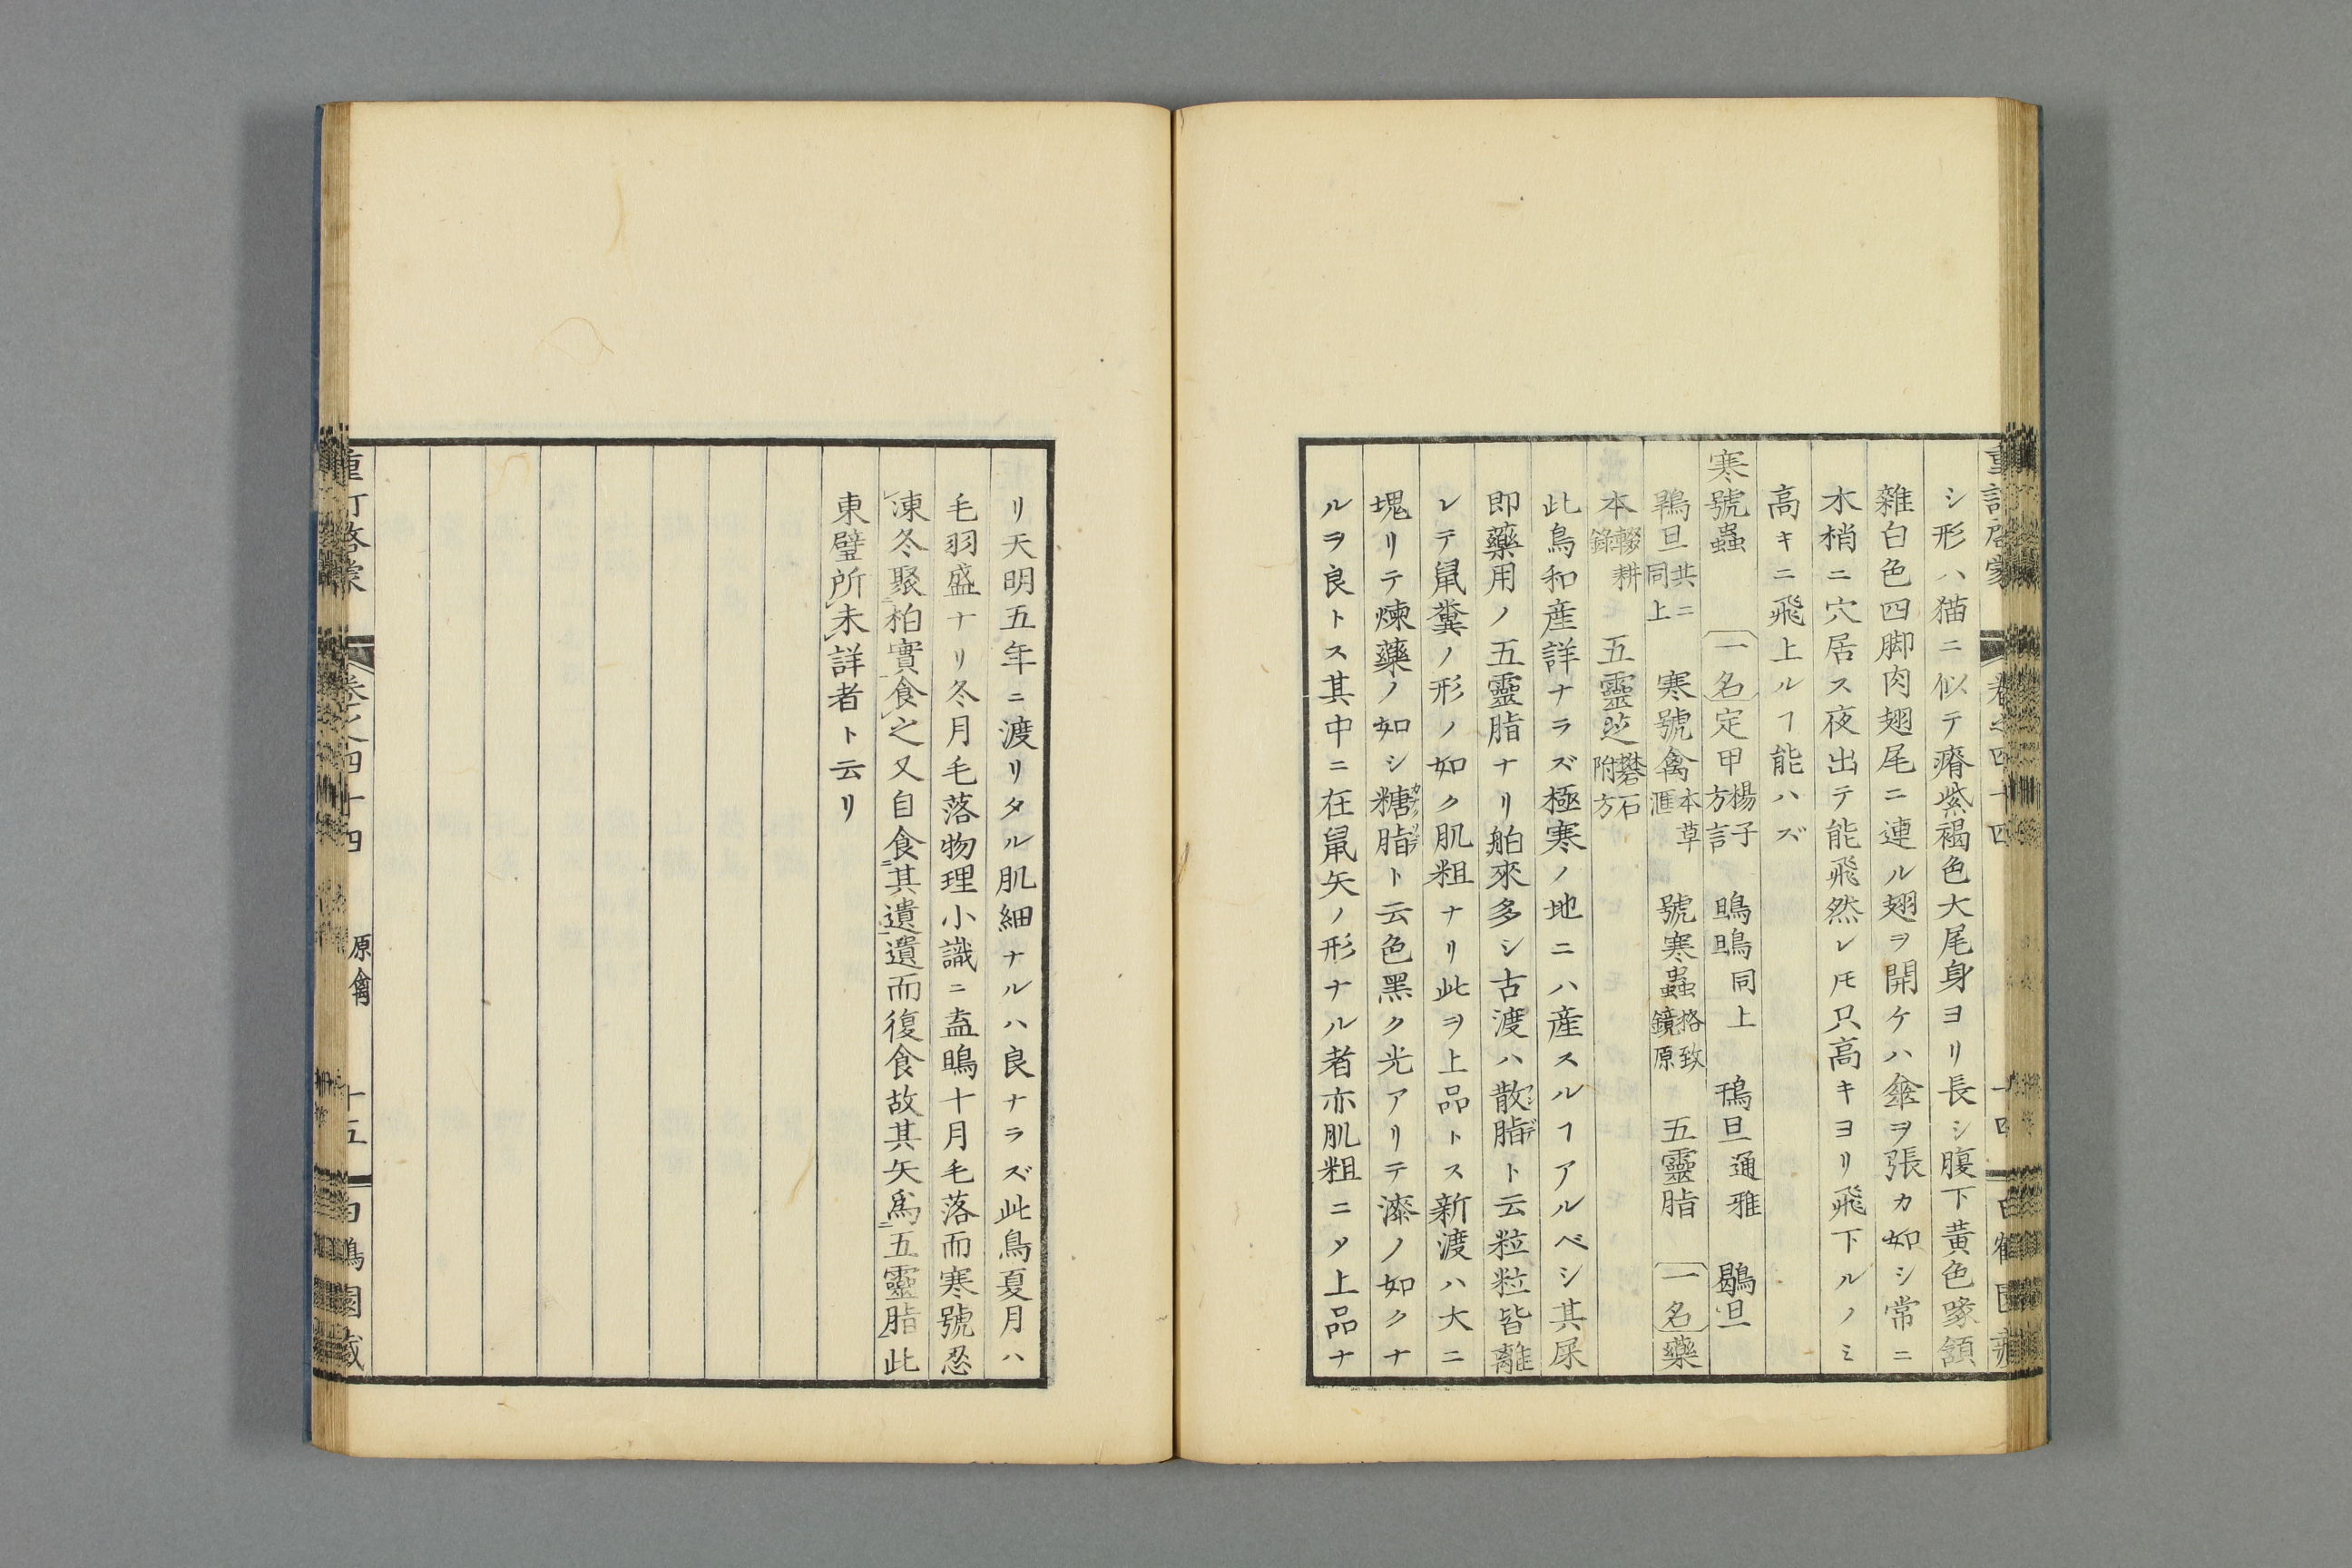 シ形ハ猫ニ似テ瘠紫褐色大尾身ヨリ長シ腹下黄色喙頷
雜白色四脚肉翅尾ニ連ル翅ヲ開ケハ傘ヲ張カ如シ常ニ
木梢ニ穴居ス夜出テ能飛然レ𪜈只高キヨリ飛下ルノミ
高キニ飛上ルヿ能ハズ
寒號蟲 一名定甲楊子方言 鴠鴠同上 鳱旦通雅 鶡旦
鶡旦共ニ同上 寒號禽本草滙 號寒蟲格致鏡原 五靈脂 一名藥
本輟耕錄 五靈芝礬石附方
此鳥和産詳ナラズ極寒ノ地ニハ産スルヿアルベシ其屎
即藥用ノ五靈脂ナリ舶來多シ古渡ハ散脂ト云粒粒皆離
レテ鼠糞ノ形ノ如ク肌粗ナリ此ヲ上品トス新渡ハ大ニ
塊リテ煉藥ノ如シ糖脂ト云色黑ク光アリテ漆ノ如クナ
ルヲ良トス其中ニ在鼠矢ノ形ナル者亦肌粗ニヿ上品ナ
重訂啓蒙 卷之四十四 十四
リ天明五年ニ渡リタル肌細ナルハ良ナラズ此鳥夏月ハ
毛羽盛ナリ冬月毛落物理小識ニ盍鴠十月毛落而寒號忍
凍冬聚柏實食之又自食其遺遺而復食故其矢爲五靈脂此
東璧所未詳者ト云リ
重訂啓蒙 卷之四十四 原禽 十五